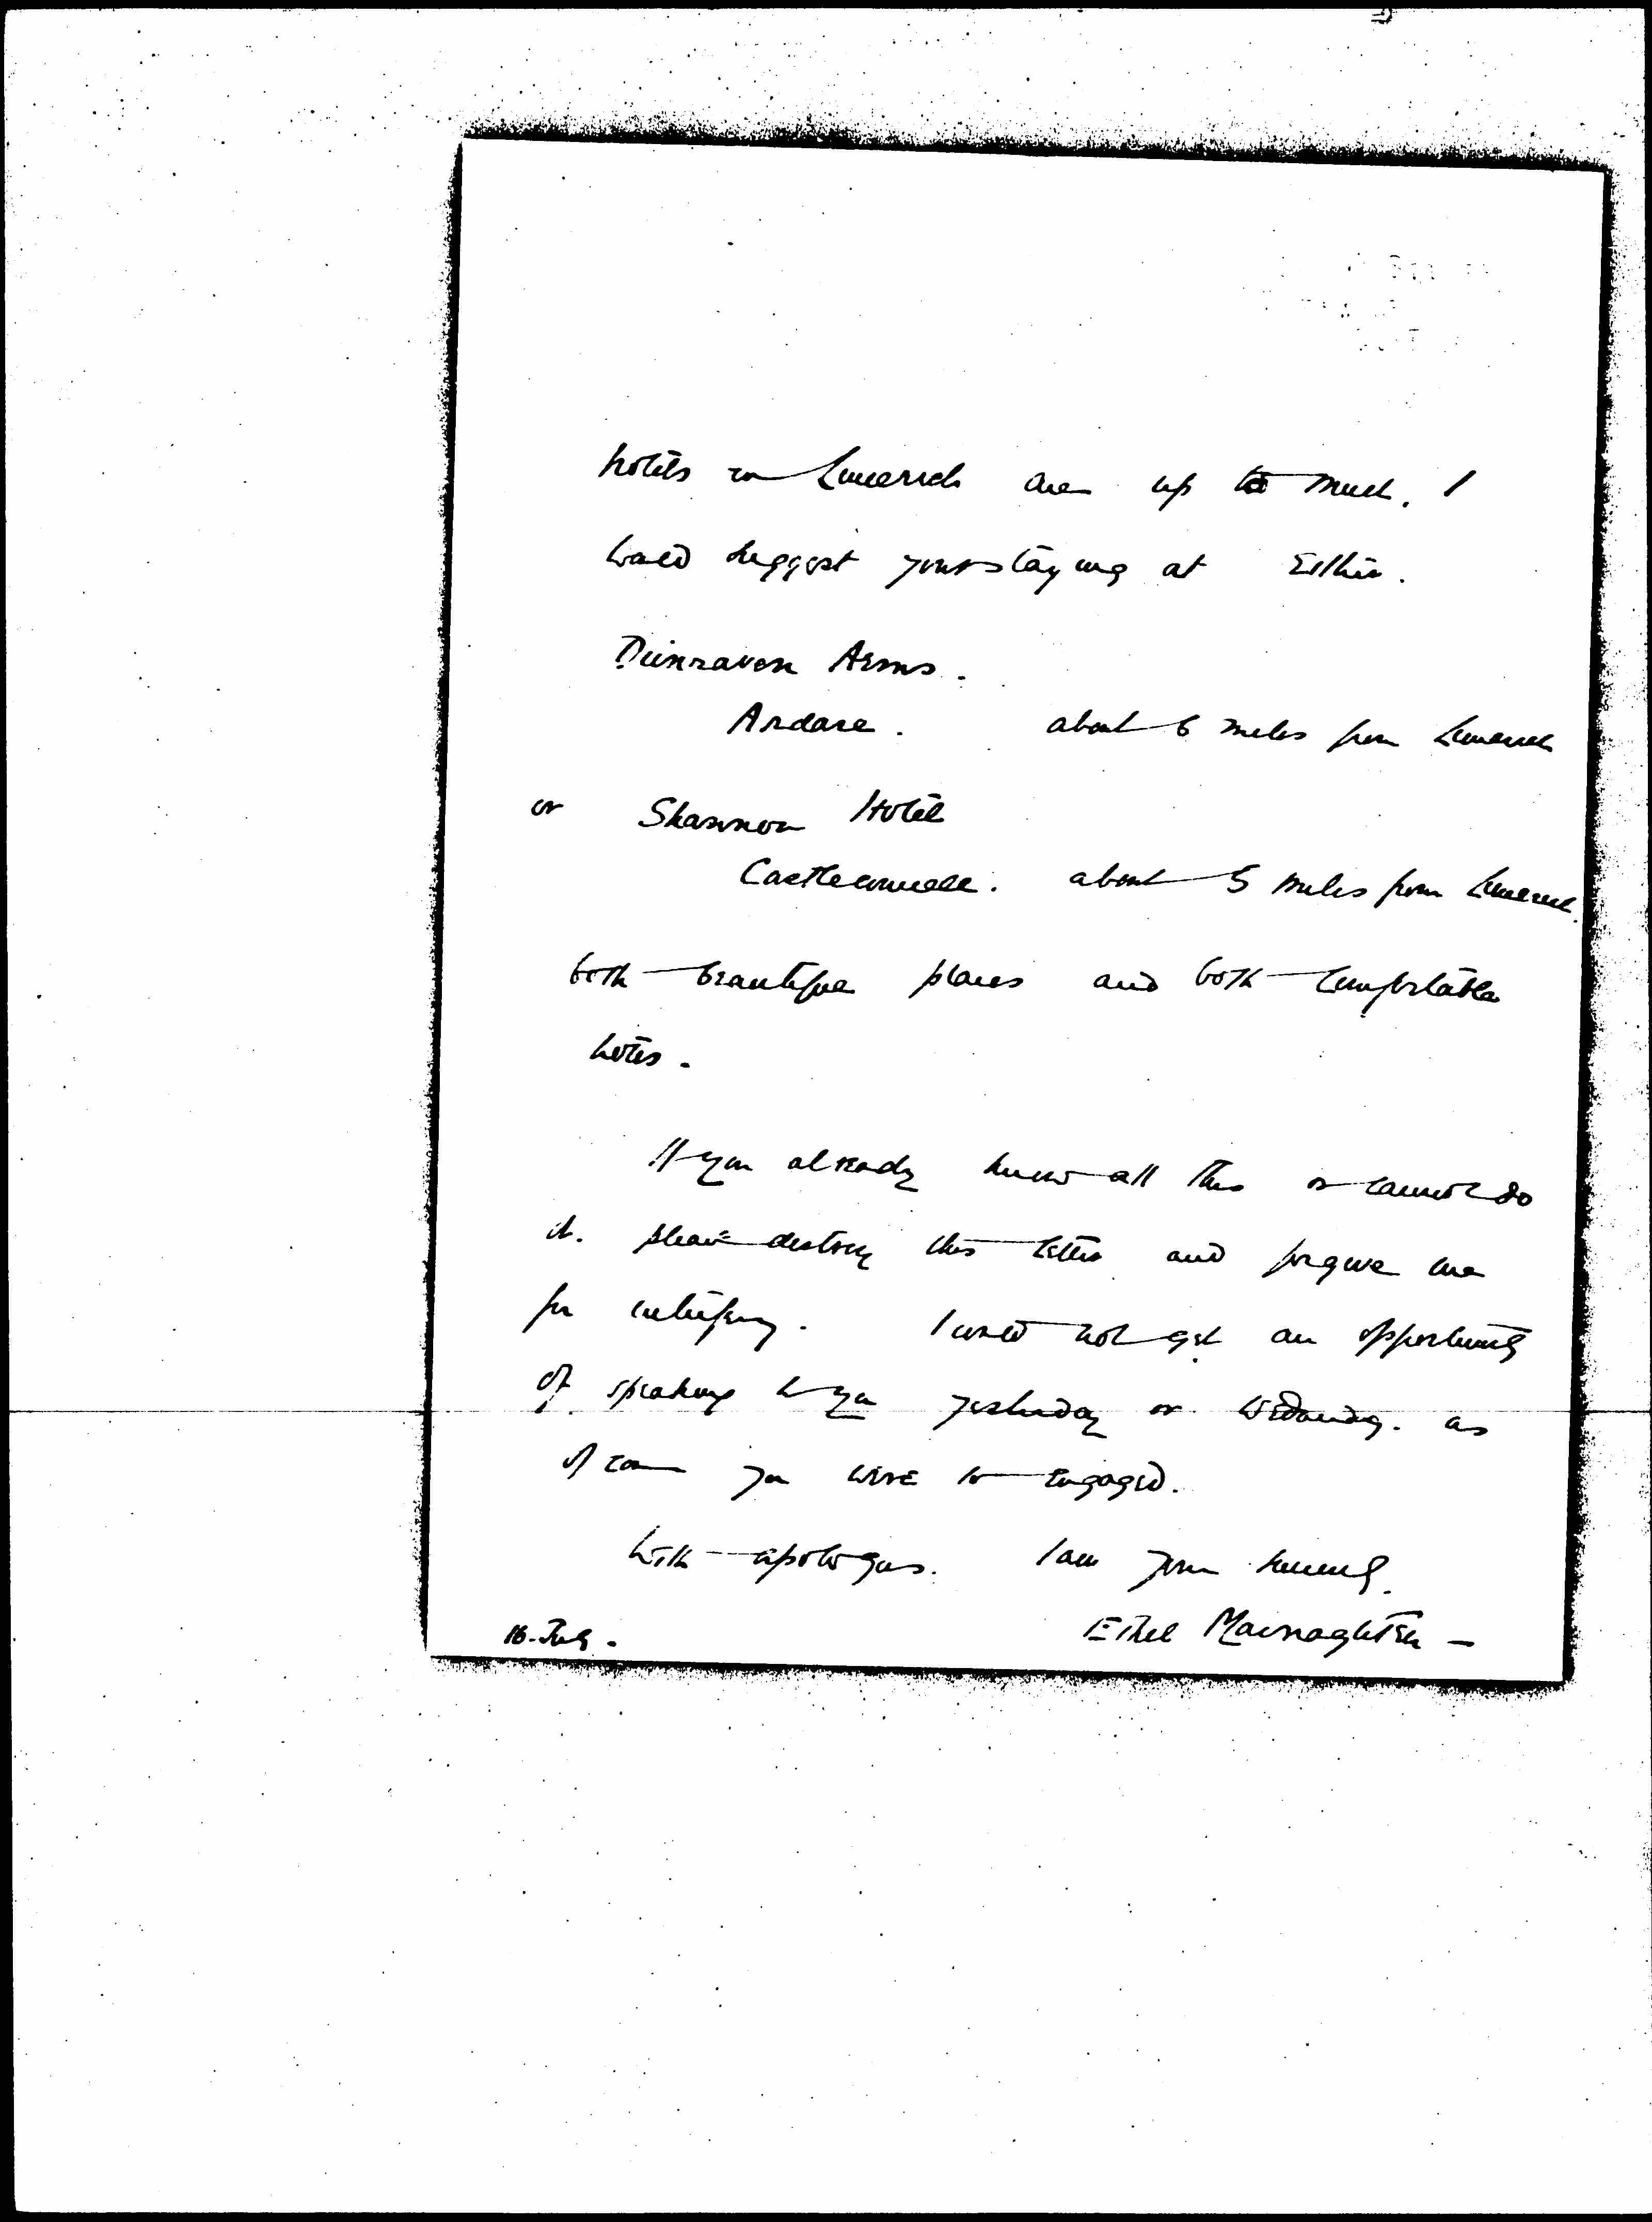 hotels in Limerick are up to much. I
would suggest your staying at Either.
Dunraven Arms.
Andare. about 6 miles from Limerick
or Shannon Hotel
Castleconnell. about 5 miles from Limerick.
both beautiful places and both comfortable
hotels.
If you already know all this or cannot do
it. please destroy this letter and forgive me
for interfering. I could not get an opportunity
of speaking to you yesterday or Wednesday. as
of course you were so engaged.
With apologies. I am yours sincerely.
16. July. Ethel Macnaghten —